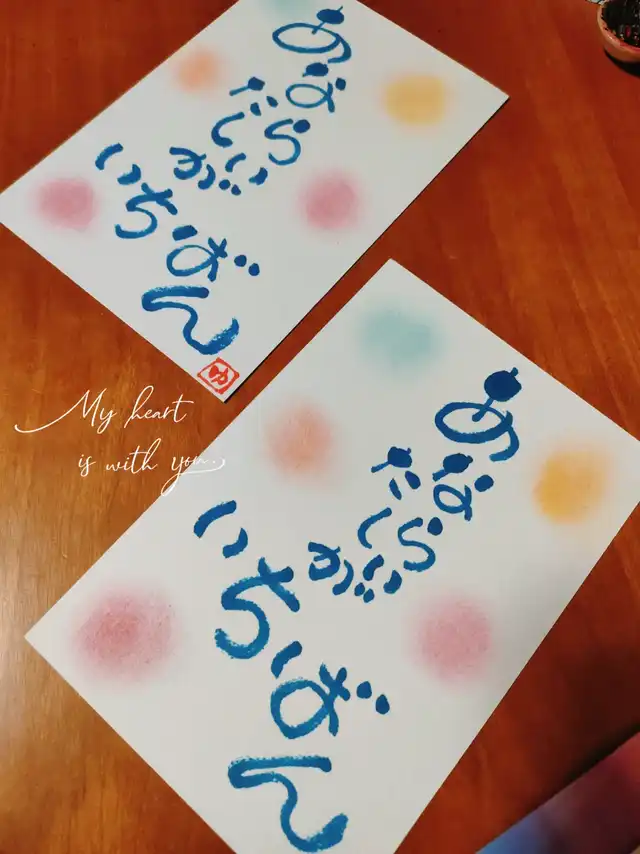 あなた
らしいが
いちばん
My heart
is with you.
あなた
らしいが
いちばん